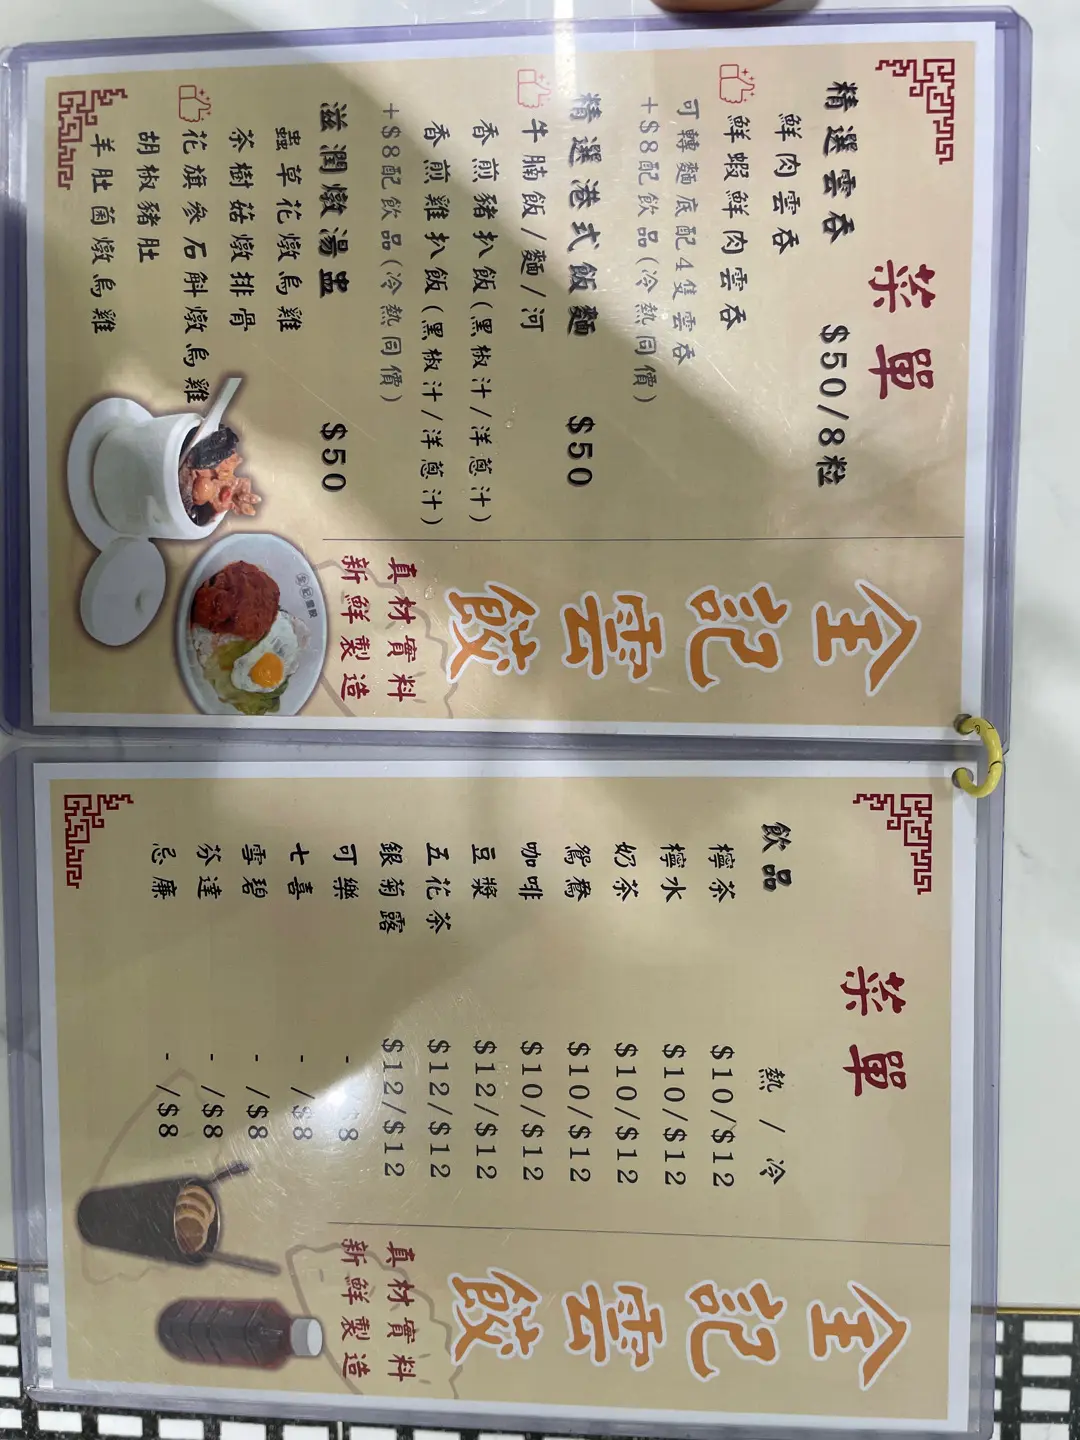 菜單
精選雲吞 $50/8粒
鮮肉雲吞
鮮蝦鮮肉雲吞
可轉麵底配4隻雲吞
+$8配飲品(冷熱同價)
精選港式飯麵 $50
牛腩飯/麵/河
香煎豬扒飯(黑椒汁/洋蔥汁)
香煎雞扒飯(黑椒汁/洋蔥汁)
+$8配飲品(冷熱同價)
滋潤燉湯盅 $50
蟲草花燉烏雞
茶樹菇燉排骨
花旗參石斛燉烏雞
胡椒豬肚
羊肚菌燉烏雞
全記雲餃
真材實料
新鮮製造
菜單
飲品 熱/冷
檸茶 $10/$12
檸水 $10/$12
奶茶 $10/$12
鴛鴦 $10/$12
咖啡 $10/$12
豆漿 $12/$12
五花茶 $12/$12
銀菊露 $12/$12
可樂 -/$8
七喜 -/$8
雪碧 -/$8
芬達 -/$8
忌廉 -/$8
全記雲餃
真材實料
新鮮製造